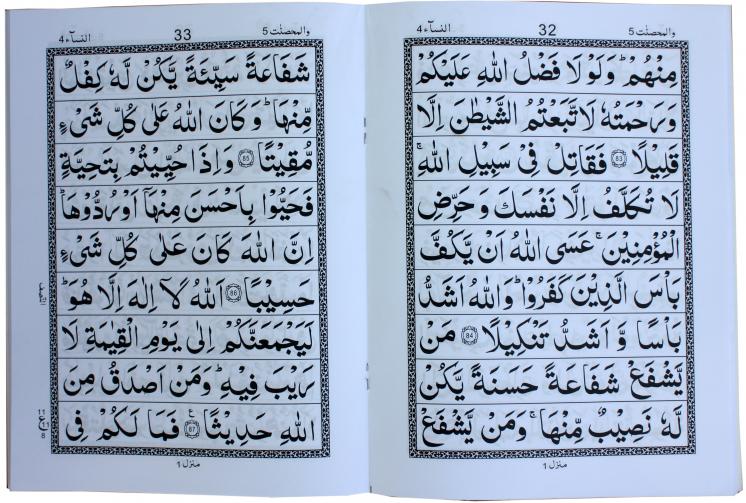 والمحصنت 5
32
النسآء 4
مِنْهُمْ ؕ وَلَوْ لَا فَضْلُ اللّٰهِ عَلَيْكُمْ
وَرَحْمَتُهٗ لَا تَّبَعْتُمُ الشَّيْطٰنَ اِلَّا
قَلِيْلًا ﴿83﴾ فَقَاتِلْ فِيْ سَبِيْلِ اللّٰهِ ۚ
لَا تُكَلَّفُ اِلَّا نَفْسَكَ وَ حَرِّضِ
الْمُؤْمِنِيْنَ ۚ عَسَى اللّٰهُ اَنْ يَّكُفَّ
بَاْسَ الَّذِيْنَ كَفَرُوْا ؕ وَاللّٰهُ اَشَدُّ
بَاْسًا وَّ اَشَدُّ تَنْكِيْلًا ﴿84﴾ مَنْ
يَّشْفَعْ شَفَاعَةً حَسَنَةً يَّكُنْ
لَّهٗ نَصِيْبٌ مِّنْهَا ۚ وَمَنْ يَّشْفَعْ
منزل 1
والمحصنت 5
33
النسآء 4
شَفَاعَةً سَيِّئَةً يَّكُنْ لَّهٗ كِفْلٌ
مِّنْهَا ؕ وَ كَانَ اللّٰهُ عَلٰى كُلِّ شَيْءٍ
مُّقِيْتًا ﴿85﴾ وَ اِذَا حُيِّيْتُمْ بِتَحِيَّةٍ
فَحَيُّوْا بِاَحْسَنَ مِنْهَاۤ اَوْ رُدُّوْهَا ؕ
اِنَّ اللّٰهَ كَانَ عَلٰى كُلِّ شَيْءٍ
حَسِيْبًا ﴿86﴾ اَللّٰهُ لَاۤ اِلٰهَ اِلَّا هُوَ ؕ
لَيَجْمَعَنَّكُمْ اِلٰى يَوْمِ الْقِيٰمَةِ لَا
رَيْبَ فِيْهِ ؕ وَمَنْ اَصْدَقُ مِنَ
اللّٰهِ حَدِيْثًا ﴿87﴾ فَمَا لَكُمْ فِي
النصف
11
ع
11
8
منزل 1